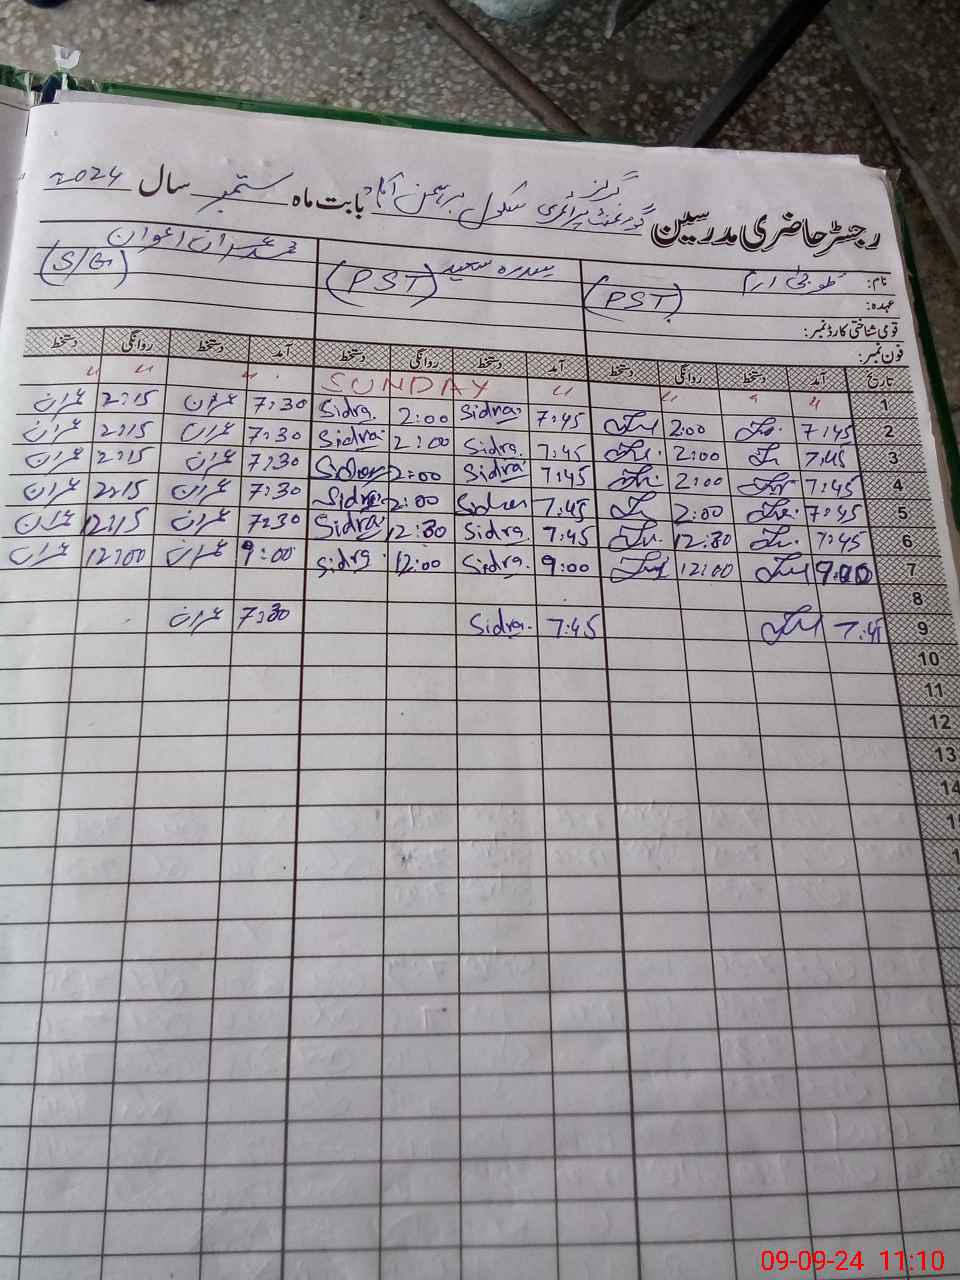 رجسٹر حاضری مدرسین گورنمنٹ گرلز پرائمری سکول برہمن آباد بابت ماہ ستمبر سال 2024
نام: طوبیٰ ارم سدرہ سعید عمران اعوان
عہدہ: (PST) (PST) (S/G)
قومی شناختی کارڈ نمبر:
فون نمبر:
تاریخ آمد دستخط روانگی دستخط آمد دستخط روانگی دستخط آمد دستخط روانگی دستخط
1 " " " " SUNDAY " " "
2 7:45 2:00 7:45 Sidra. 2:00 Sidra. 7:30 عمران 2:15 عمران
3 7:45 2:00 7:45 Sidra. 2:00 Sidra 7:30 عمران 2:15 عمران
4 7:45 2:00 7:45 Sidra 2:00 Sidra 7:30 عمران 2:15 عمران
5 7:45 2:00 7:45 Sidra 2:00 Sidra 7:30 عمران 2:15 عمران
6 7:45 12:30 7:45 Sidra. 12:30 Sidra 7:30 عمران 12:15 عمران
7 9:00 12:00 9:00 Sidra. 12:00 Sidra 9:00 عمران 12:00 عمران
8
9 7:45 7:45 Sidra. 7:30 عمران
10
11
12
13
14
09-09-24 11:10